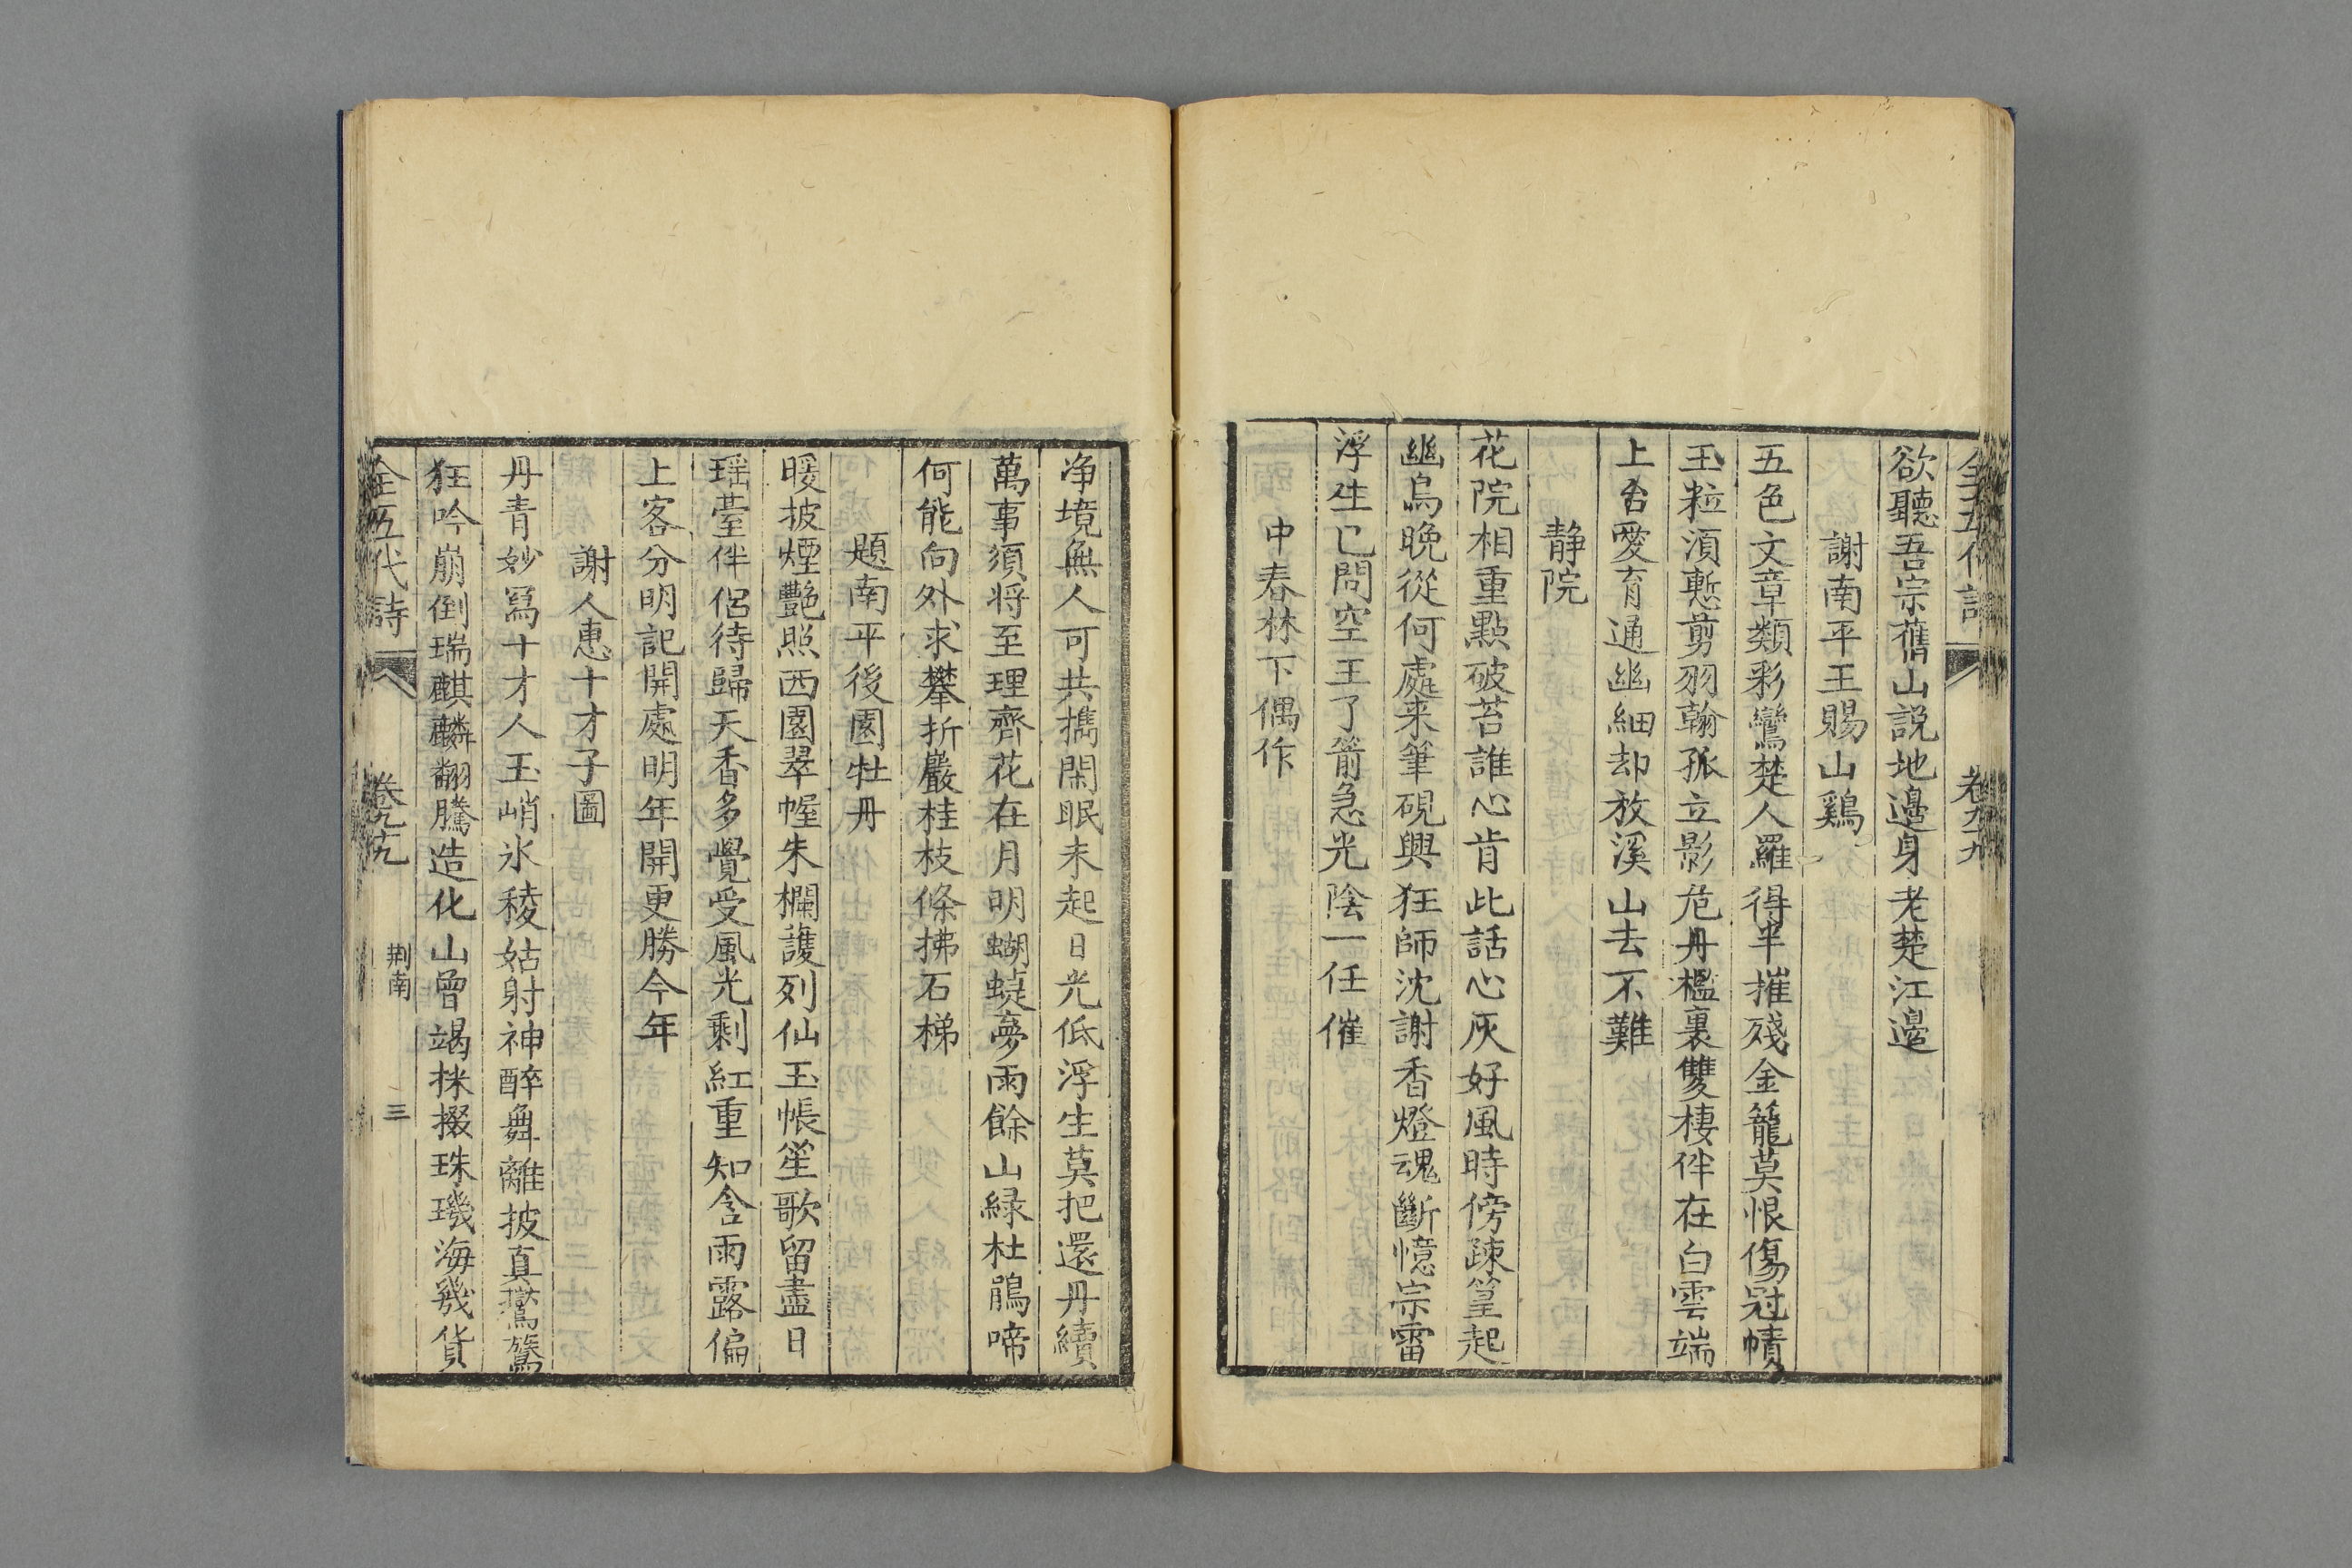 全五代詩 卷九十九
欲聽吾宗舊山説地邊身老楚江邊
謝南平王賜山鷄
五色文章類彩鸞楚人羅得半摧殘金籠莫恨傷冠幘
玉粒湏慙剪羽翰孤立影危丹檻裏雙棲伴在白雲端
上台愛育通幽細却放溪山去不難
静院
花院相重點破苔誰心肯此話心灰好風時傍疎篁起
幽鳥晩從何處来筆硯興狂師沈謝香燈魂斷憶宗雷
浮生已問空王了箭急光陰一任催
中春林下偶作
净境無人可共携閑眠未起日光低浮生莫把還丹續
萬事須将至理齊花在月明蝴蜨夢雨餘山緑杜鵑啼
何能向外求攀折巖桂枝條拂石梯
題南平後園牡丹
暖披煙艷照西園翠幄朱欄護列仙玉帳笙歌留盡日
瑶臺伴侣待歸天香多覺受風光剩紅重知含雨露偏
上客分明記開處明年開更勝今年
謝人惠十才子圖
丹青妙寫十才人玉峭氷稜姑射神醉舞離披真鸑鷟
狂吟崩倒瑞麒麟翻騰造化山曾竭採掇珠璣海幾貨
全五代詩 卷九十九 荆南 三